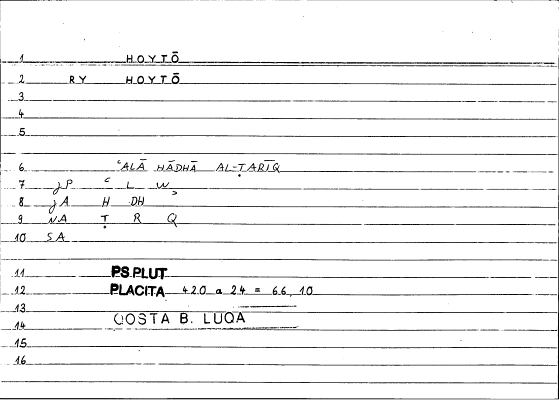 1 HOYTŌ
2 RY HOYTŌ
3
4
5
6 ʿALĀ HĀDHĀ AL-ṬARĪQ
7 jP ʿ L W
8 jA H DH
9 NA Ṭ R Q
10 SA
11 PS.PLUT
12 PLACITA 420 a 24 = 66, 10
13
14 QOSTA B. LUQA
15
16